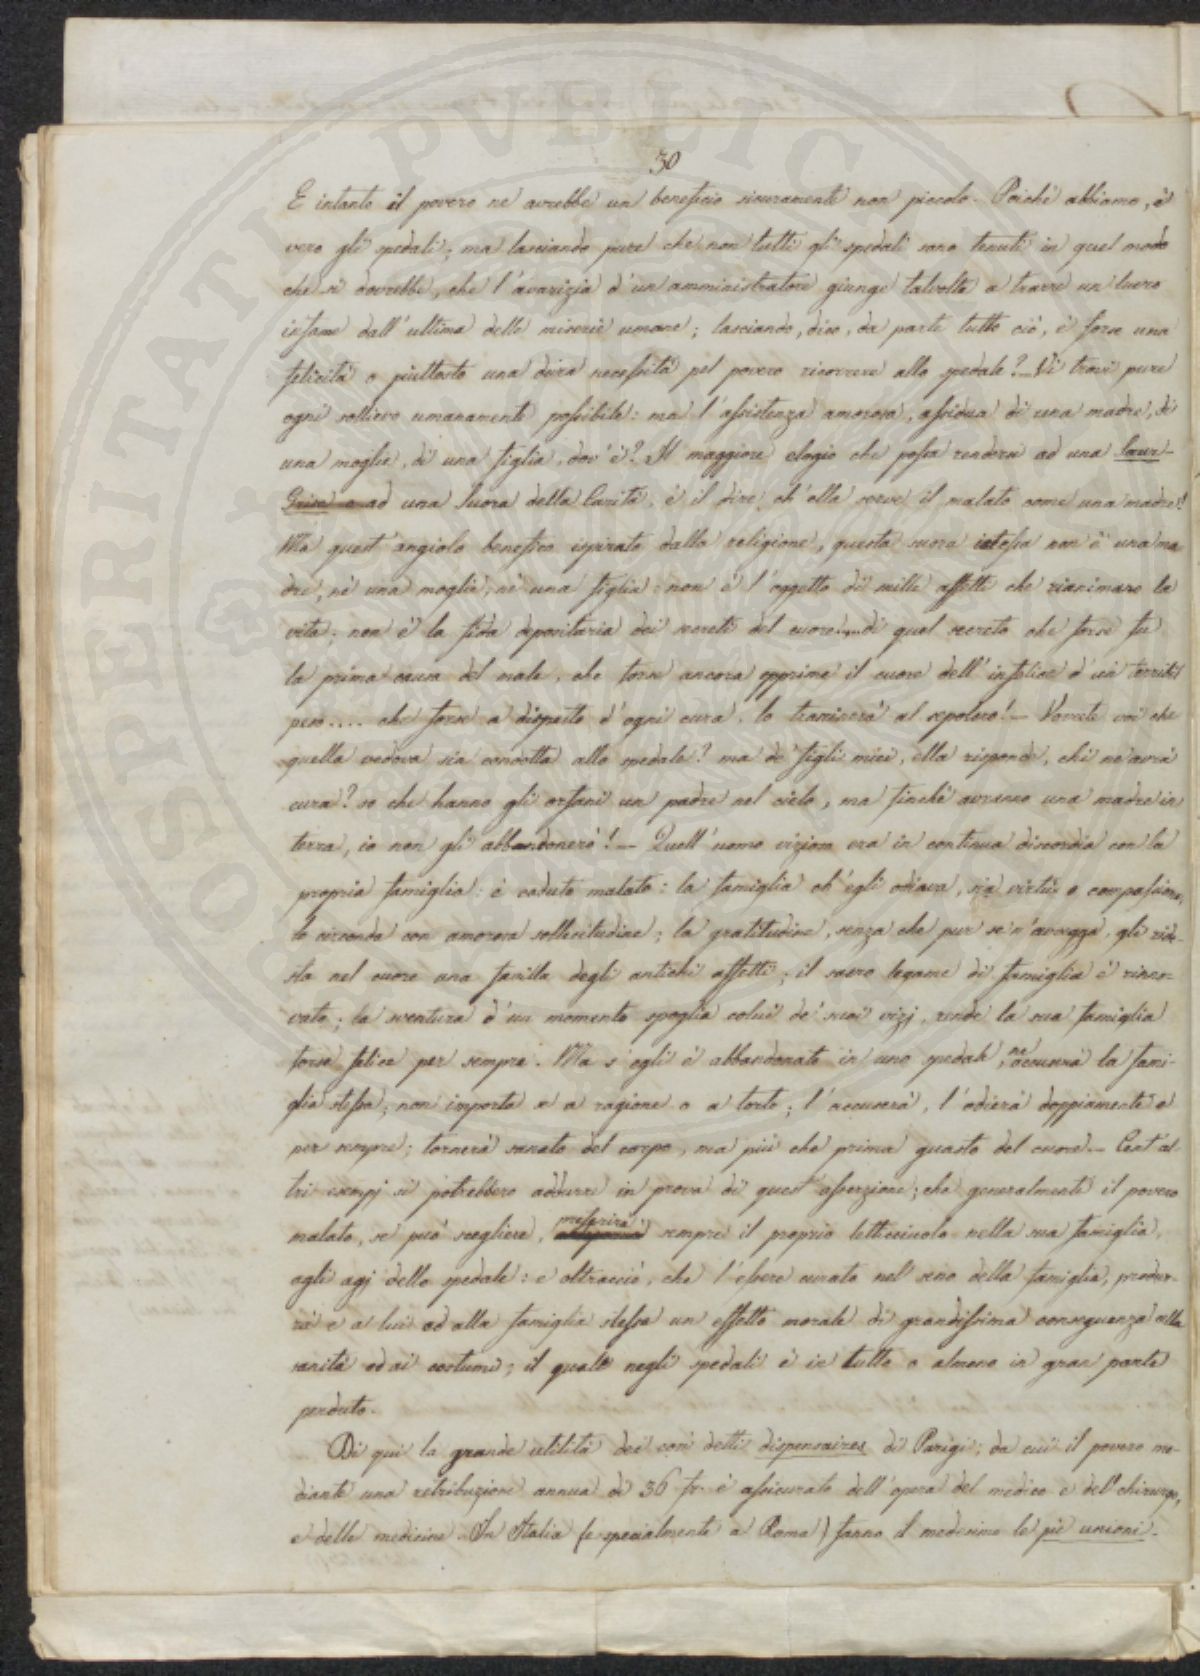 30
E intanto il povero ne avrebbe un beneficio sicuramente non piccolo. Poichè abbiamo, è
vero gli spedali; ma lasciando pure che non tutti gli spedali sono tenuti in quel modo
che si dovrebbe, che l'avarizia d'un amministratore giunge talvolta a trarre un lucro
infame dall'ultima delle miserie umane; lasciando, dico, da parte tutto ciò, è forse una
felicità o piuttosto una dura necessità pel povero ricorrere allo spedale? — Vi trovi pure
ogni sollievo umanamente possibile: ma l'assistenza amorosa, assidua di una madre, di
una moglie, di una figlia, dov'è? Il maggiore elogio che possa rendersi ad una Saur-
Grise o ad una Suora della Carità, è il dire, ch'ella serve il malato come una madre!
Ma quest'angiolo benefico ispirato dalla religione, questa suora istessa non è una ma-
dre, nè una moglie, nè una figlia: non è l'oggetto di mille affetti che rianimano la
vita; non è la fida depositaria dei secreti del cuore.... di quel secreto che forse fu
la prima causa del male, che forse ancora opprime il cuore dell'infelice d'un terribil
peso.... che forse a dispetto d'ogni cura, lo trascinerà al sepolcro! — Vorreste voi che
quella vedova sia condotta allo spedale? ma de' figli miei, ella risponde, chi ne avrà
cura? so che hanno gli orfani un padre nel cielo, ma finchè avranno una madre in
terra, io non gli abbandonerò! — Quell'uomo vizioso era in continua discordia con la
propria famiglia: è caduto malato: la famiglia ch'egli odiava, sia virtù o compassione,
lo circonda con amorosa sollecitudine; la gratitudine, senza che pur se n'avvegga, gli ride-
sta nel cuore una favilla degli antichi affetti; il sacro legame di famiglia è rinno-
vato; la sventura d'un momento spoglia colui de' suoi vizj, rende la sua famiglia
forse felice per sempre. Ma s'egli è abbandonato in uno spedale, ne accuserà la fami-
glia stessa; non importa se a ragione o a torto; l'accuserà, l'odierà doppiamente e
per sempre; tornerà sanato del corpo, ma più che prima guasto del cuore — Cent'al-
tri esempj si potrebbero addurre in prova di quest'asserzione; che generalmente il povero
malato, se può scegliere, preferirà sempre il proprio letticciuolo nella sua famiglia,
agli agj dello spedale: e oltracciò, che l'essere curato nel seno della famiglia, produr-
rà e a lui ed alla famiglia stessa un effetto morale di grandissima conseguenza alla
sanità ed ai costumi; il quale negli spedali è in tutto o almeno in gran parte
perduto.
Di qui la grande utilità dei così detti dispensaires di Parigi; da cui il povero me-
diante una retribuzione annua di 36 fr. è assicurato dell'opera del medico e del chirurgo,
e delle medicine. In Italia (e specialmente a Roma) fanno il medesimo le pie unioni.
PROSPERITATI PVBLICAE